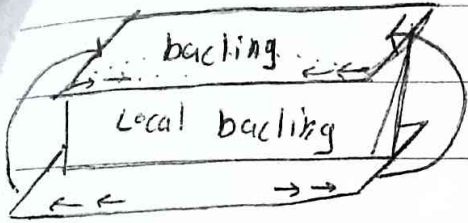 bacling
Local bacling